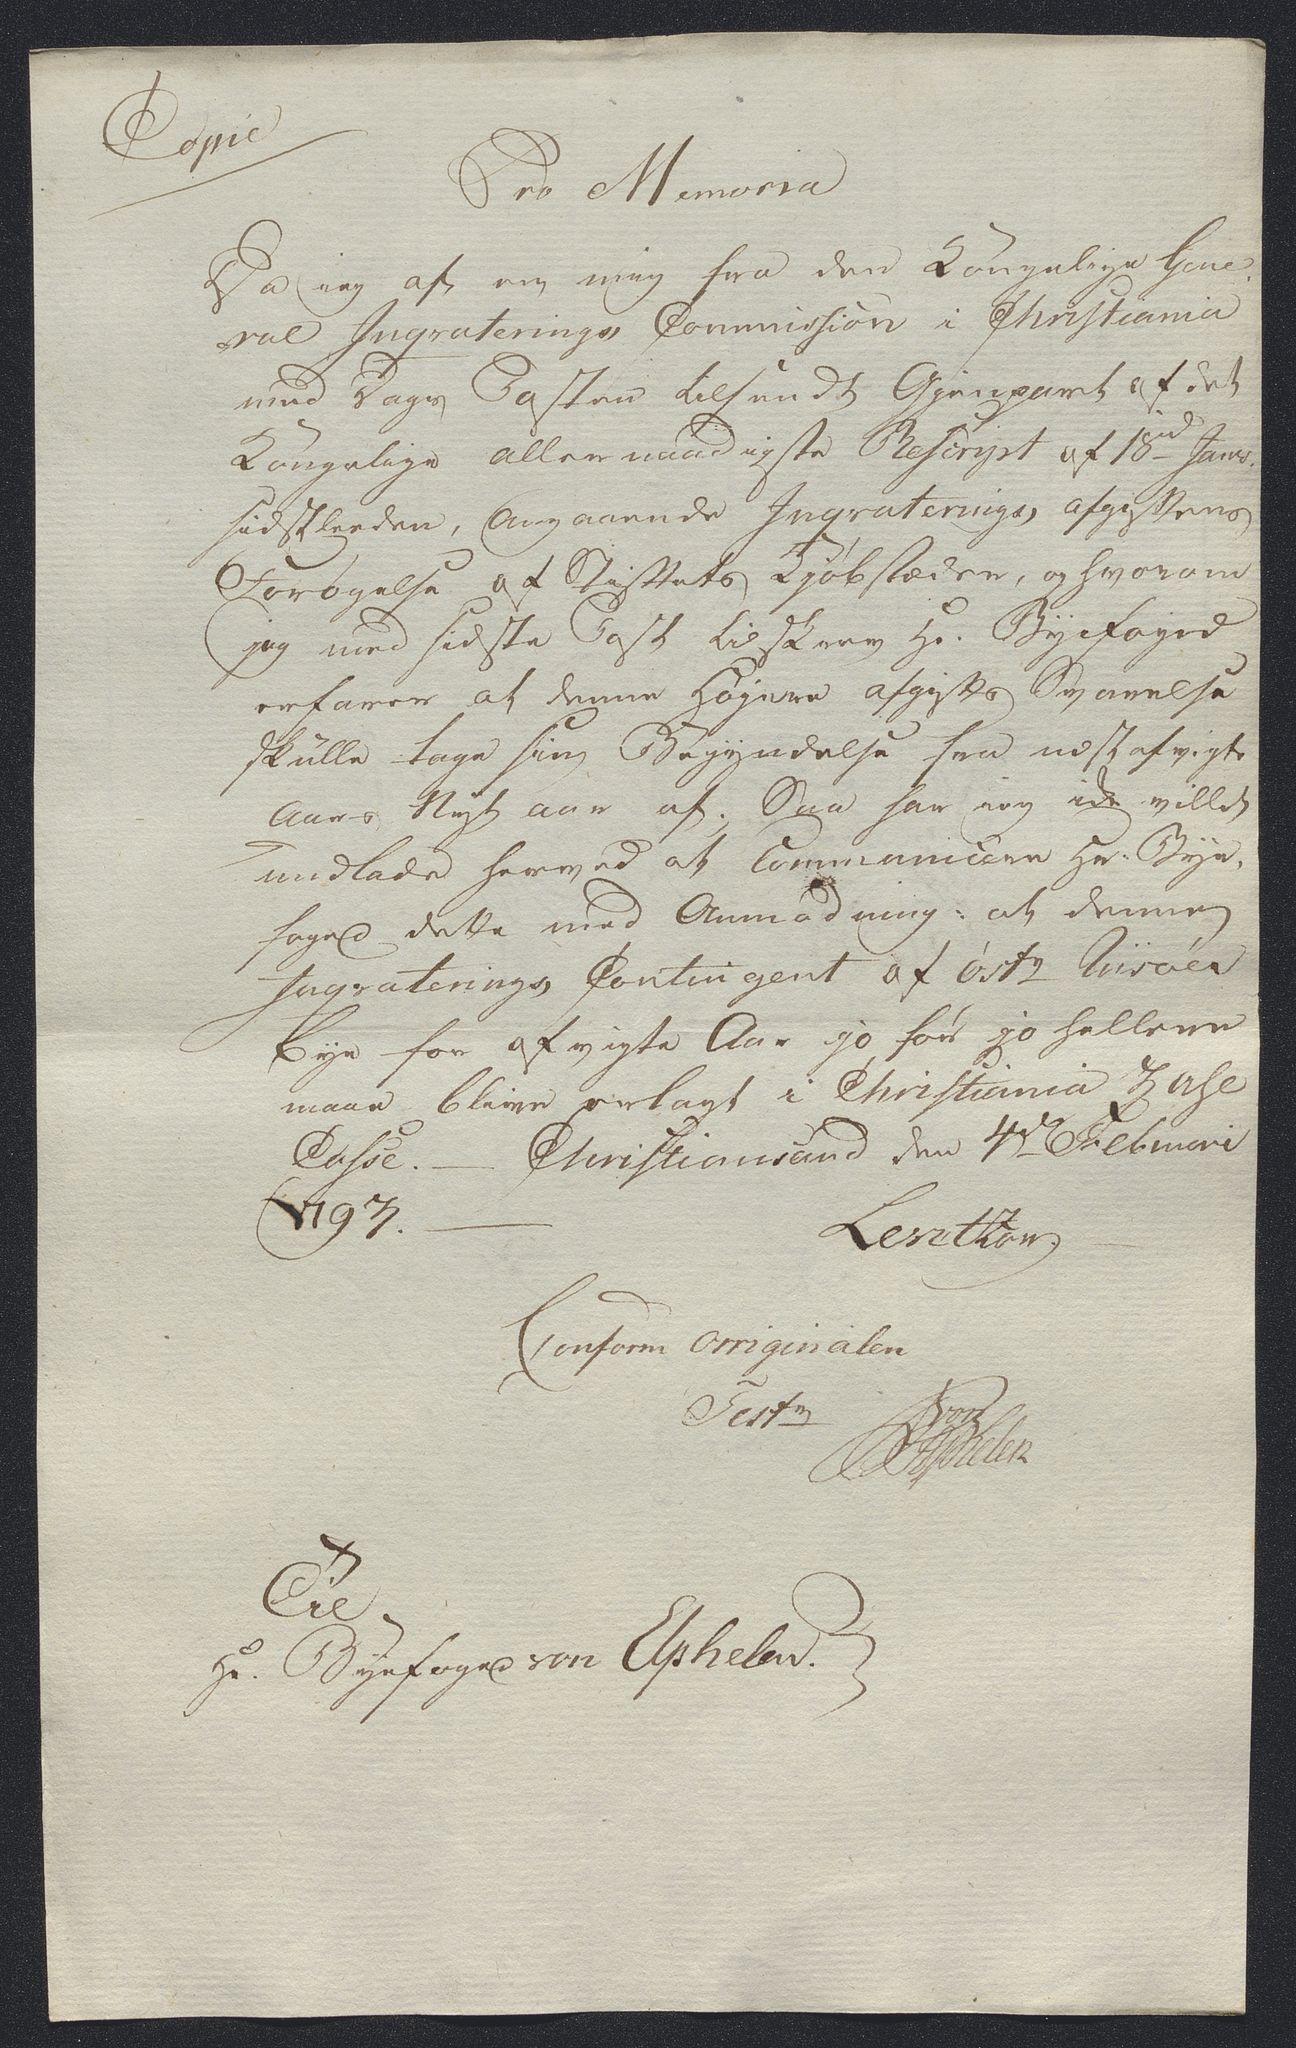 Copie
Pro Memoria
Da ieg af en mig fra den Kongelige Gene-
ral Inqvaterings Commission i Christiania
med Dags Posten tilsendt Gjenpart af det
Kongelige allernaadigste Rescript af 18de Janv.
sidstleeden, angaaende Inqvaterings afgiftens
Forøgelse af Stiftets Kjøbstæder, og hvorom
jeg med sidste Post tilskrev Hr. Byefoged
erfarer at denne Høyere afgifts Svarelse
skulle tage sin Begyndelse fra nest afvigte
Aars Nyt aar af. Saa har ieg ide villet
undlade herved at Communicere Hr. Bye-
foged dette med Anmodning: at denne
Inqvaterings Contingent af Østr Riisøer
Bye for afvigte Aar jo før jo hellere
maae blive erlagt i Christiania Zahl
Casse. — Christiansand den 4de Februari
1793. —
Levetzow.
Conform originalen
Test
von
Elphelen
Til
Hr. Byefoged von Elphelen.